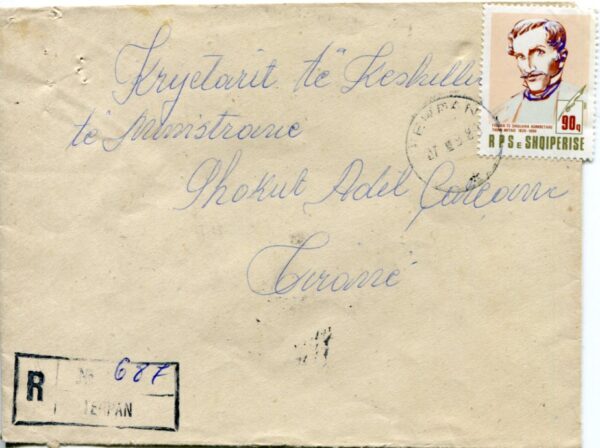 Kryetarit të Keshillit
të Ministrave
Shokut Adil Çarçani
Tiranë
90q
RPS E SHQIPERISE
R
№ 687
TERPAN